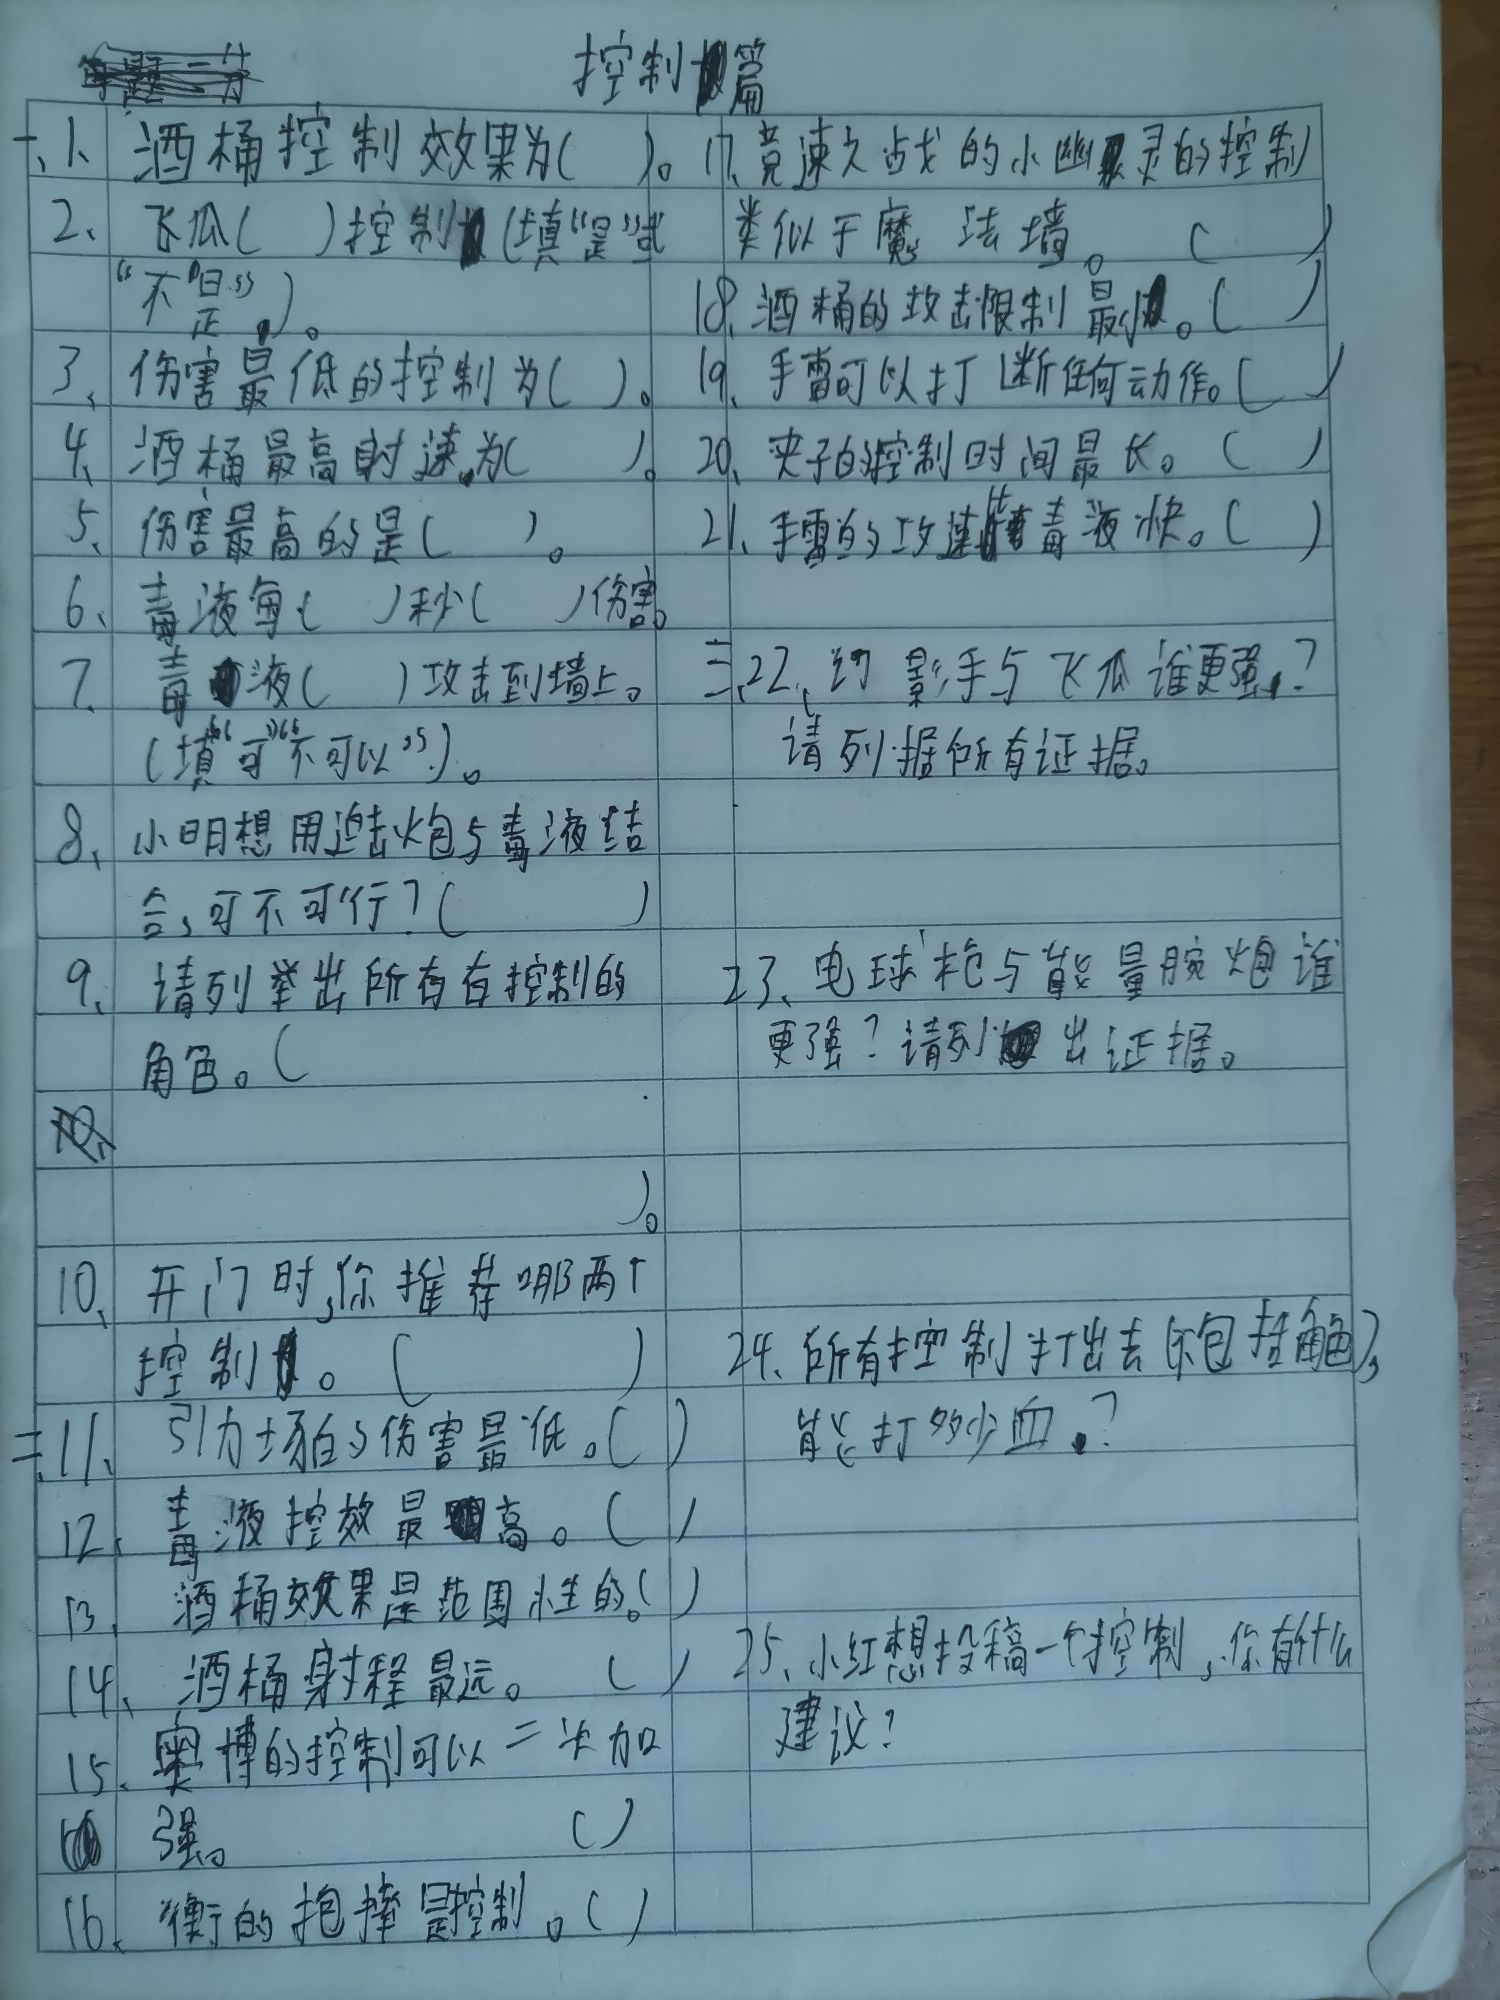 控制篇
一、1、酒桶控制效果为( )。
2、飞瓜( )控制(填“是”或
“不是”)。
3、伤害最低的控制为( )。
4、酒桶最高射速为( )。
5、伤害最高的是( )。
6、毒液每( )秒( )伤害。
7、毒液( )攻击到墙上。
(填“可”“不可以”)。
8、小明想用迫击炮与毒液结
合,可不可行?( )
9、请列举出所有有控制的
角色。(
)。
10、开门时,你推荐哪两个
控制。( )
二、11、引力场的伤害最低。( )
12、毒液控效最高。( )
13、酒桶效果是范围性的。( )
14、酒桶射程最远。( )
15、奥博的控制可以二次加
强。( )
16、衡的抱摔是控制。( )
17、竞速之战的小幽灵的控制
类似于魔法墙。( )
18、酒桶的攻击限制最小。( )
19、手雷可以打断任何动作。( )
20、夹子的控制时间最长。( )
21、手雷的攻速毒液快。( )
三、22、幻影手与飞瓜谁更强?
请列据所有证据。
23、电球枪与能量腕炮谁
更强?请列出证据。
24、所有控制打出去(不包括角色),
能打多少血?
25、小红想投稿一个控制,你有什么
建议?